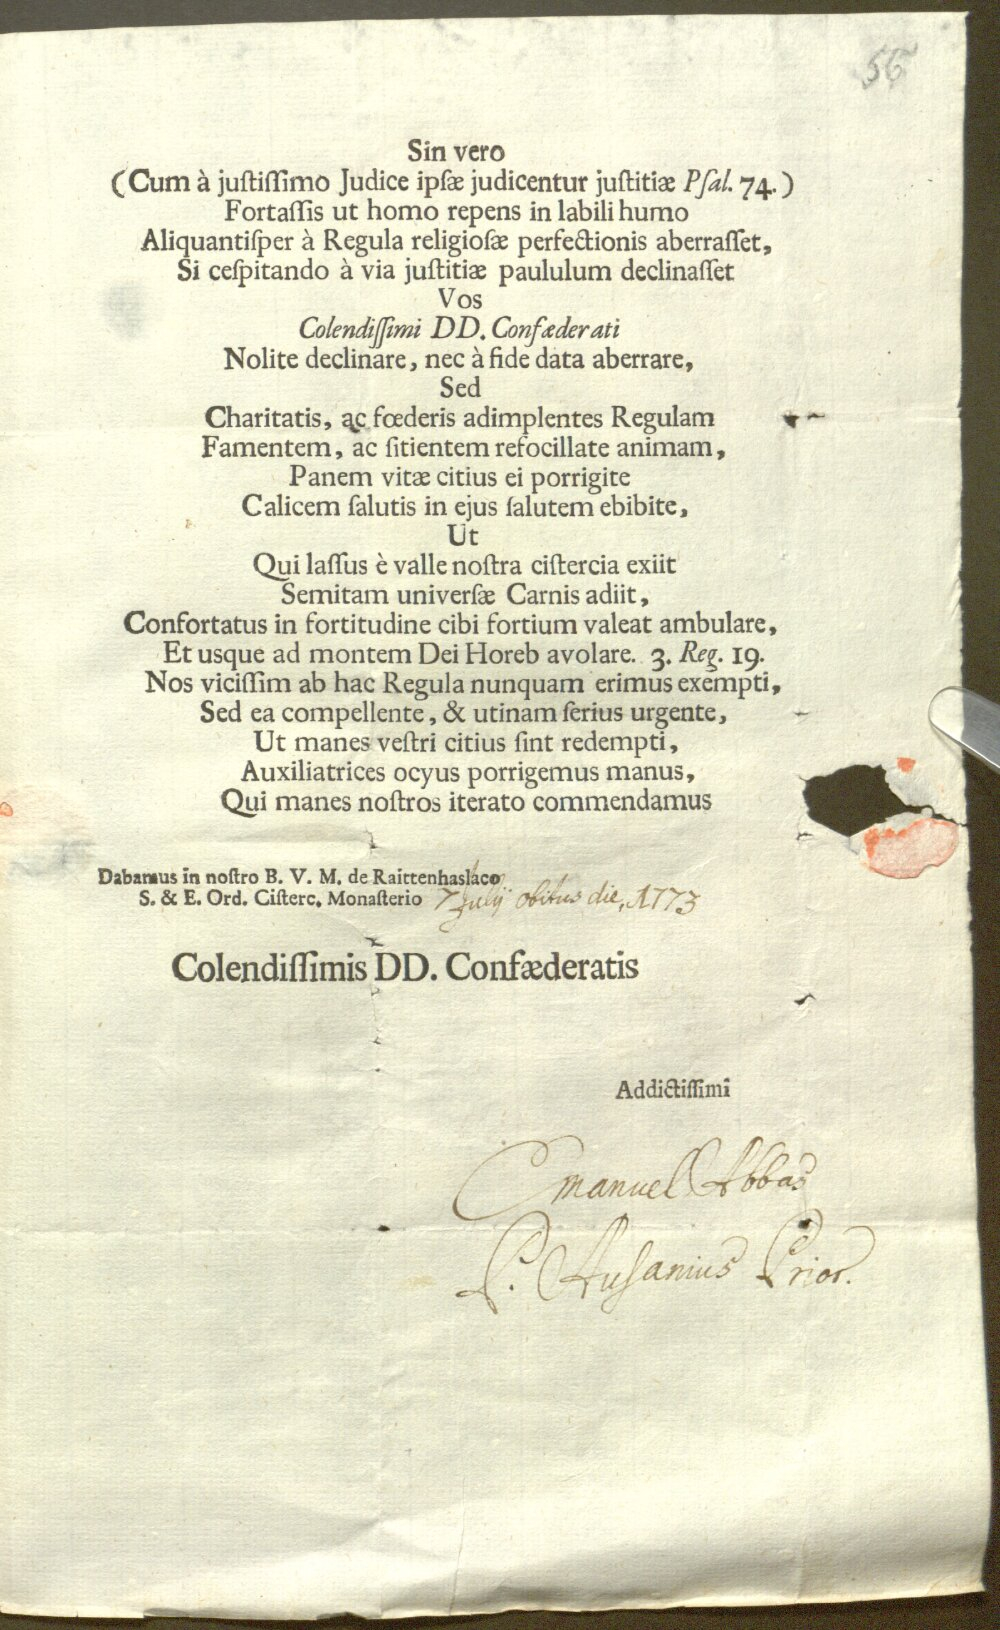 56
Sin vero
(Cum à juſtiſſimo Judice ipſæ judicentur juſtitiæ Pſal. 74.)
Fortaſſis ut homo repens in labili humo
Aliquantiſper à Regula religioſæ perfectionis aberraſſet,
Si ceſpitando à via juſtitiæ paululum declinaſſet
Vos
Colendiſſimi DD. Confæderati
Nolite declinare, nec à fide data aberrare,
Sed
Charitatis, ac fœderis adimplentes Regulam
Famentem, ac ſitientem refocillate animam,
Panem vitæ citius ei porrigite
Calicem ſalutis in ejus ſalutem ebibite,
Ut
Qui laſſus è valle noſtra ciſtercia exiit
Semitam univerſæ Carnis adiit,
Confortatus in fortitudine cibi fortium valeat ambulare,
Et usque ad montem Dei Horeb avolare. 3. Reg. 19.
Nos viciſſim ab hac Regula nunquam erimus exempti,
Sed ea compellente, & utinam ſerius urgente,
Ut manes veſtri citius ſint redempti,
Auxiliatrices ocyus porrigemus manus,
Qui manes noſtros iterato commendamus
Dabamus in noſtro B. V. M. de Raittenhaslaco
S. & E. Ord. Ciſterc. Monaſterio 7 Julij obitus die, 1773
Colendiſſimis DD. Confæderatis
Addictiſſimi
Emanuel Abbas
P. Ausanius Prior.